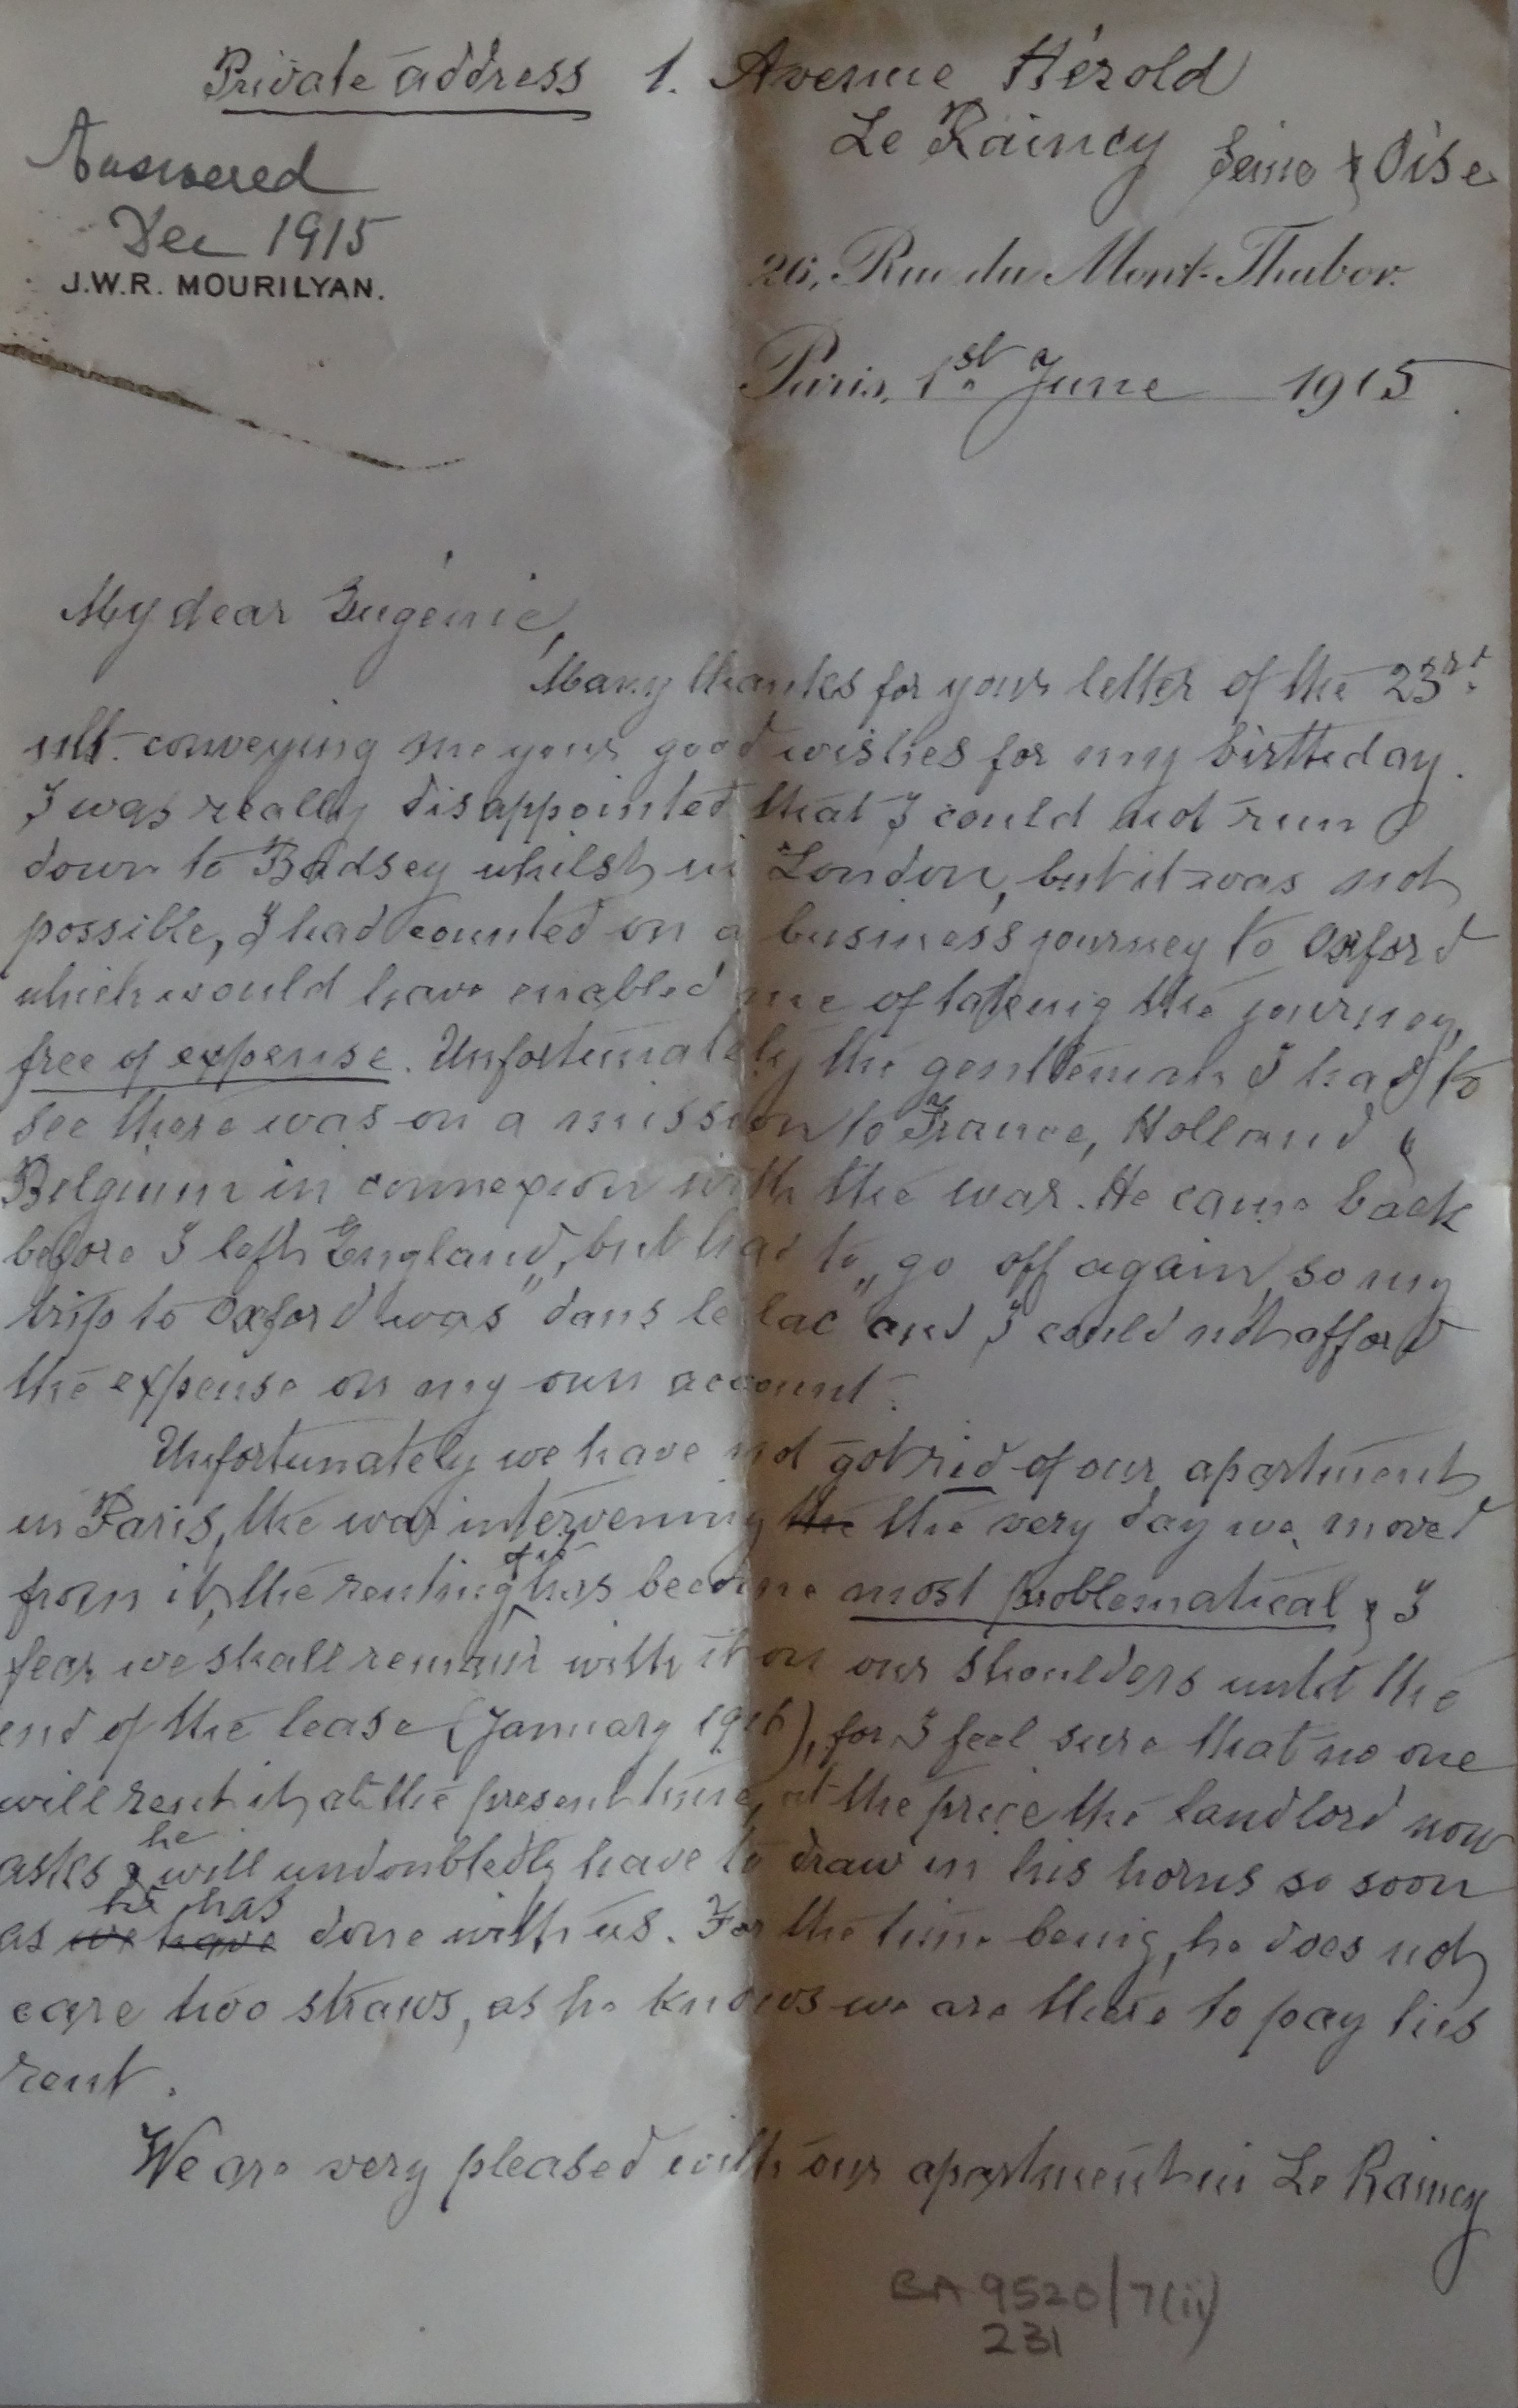 Private address 1. Avenue Hérold
Le Raincy Seine & Oise
Answered
Dec 1915
J.W.R. MOURILYAN.
26, Rue du Mont-Thabor.
Paris, 1st June 1915
My dear Eugénie,
Many thanks for your letter of the 23rd
ult. conveying me your good wishes for my birthday.
I was really disappointed that I could not run
down to Badsey whilst in London, but it was not
possible, I had counted on a business journey to Oxford
which would have enabled me of taking the journey,
free of expense. Unfortunately the gentleman I had to
see there was on a mission to France, Holland &
Belgium in connexion with the war. He came back
before I left England, but had to go off again, so my
trip to Oxford was "dans le lac" and I could not afford
the expense on my own account.
Unfortunately we have not got rid of our apartment
in Paris, the war intervening the the very day we moved
from it, the renting of it has become most problematical & I
fear we shall remain with it on our shoulders until the
end of the lease (January 1916), for I feel sure that no one
will rent it at the present time, at the price the landlord now
asks & he will undoubtedly have to draw in his horns so soon
as we have he has done with us. For the time being, he does not
care two straws, as he knows we are there to pay his
rent.
We are very pleased with our apartment in Le Raincy
BA 9520/7(ii)
231